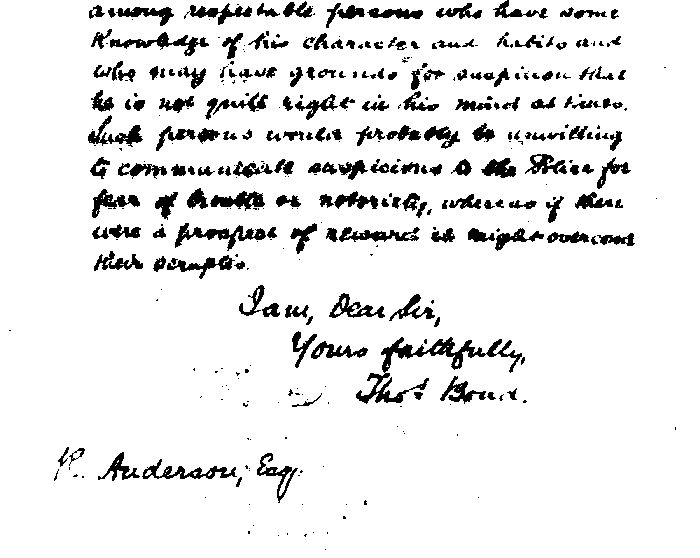 among respectable persons who have some
Knowledge of his character and habits and
who may have grounds for suspicion that
he is not quite right in his mind at times.
Such persons would probably be unwilling
to communicate suspicions to the Police for
fear of trouble or notoriety, whereas if there
were a prospect of reward it might overcome
their scruples.
I am, Dear Sir,
Yours faithfully,
Thos. Bond.
R. Anderson, Esq.